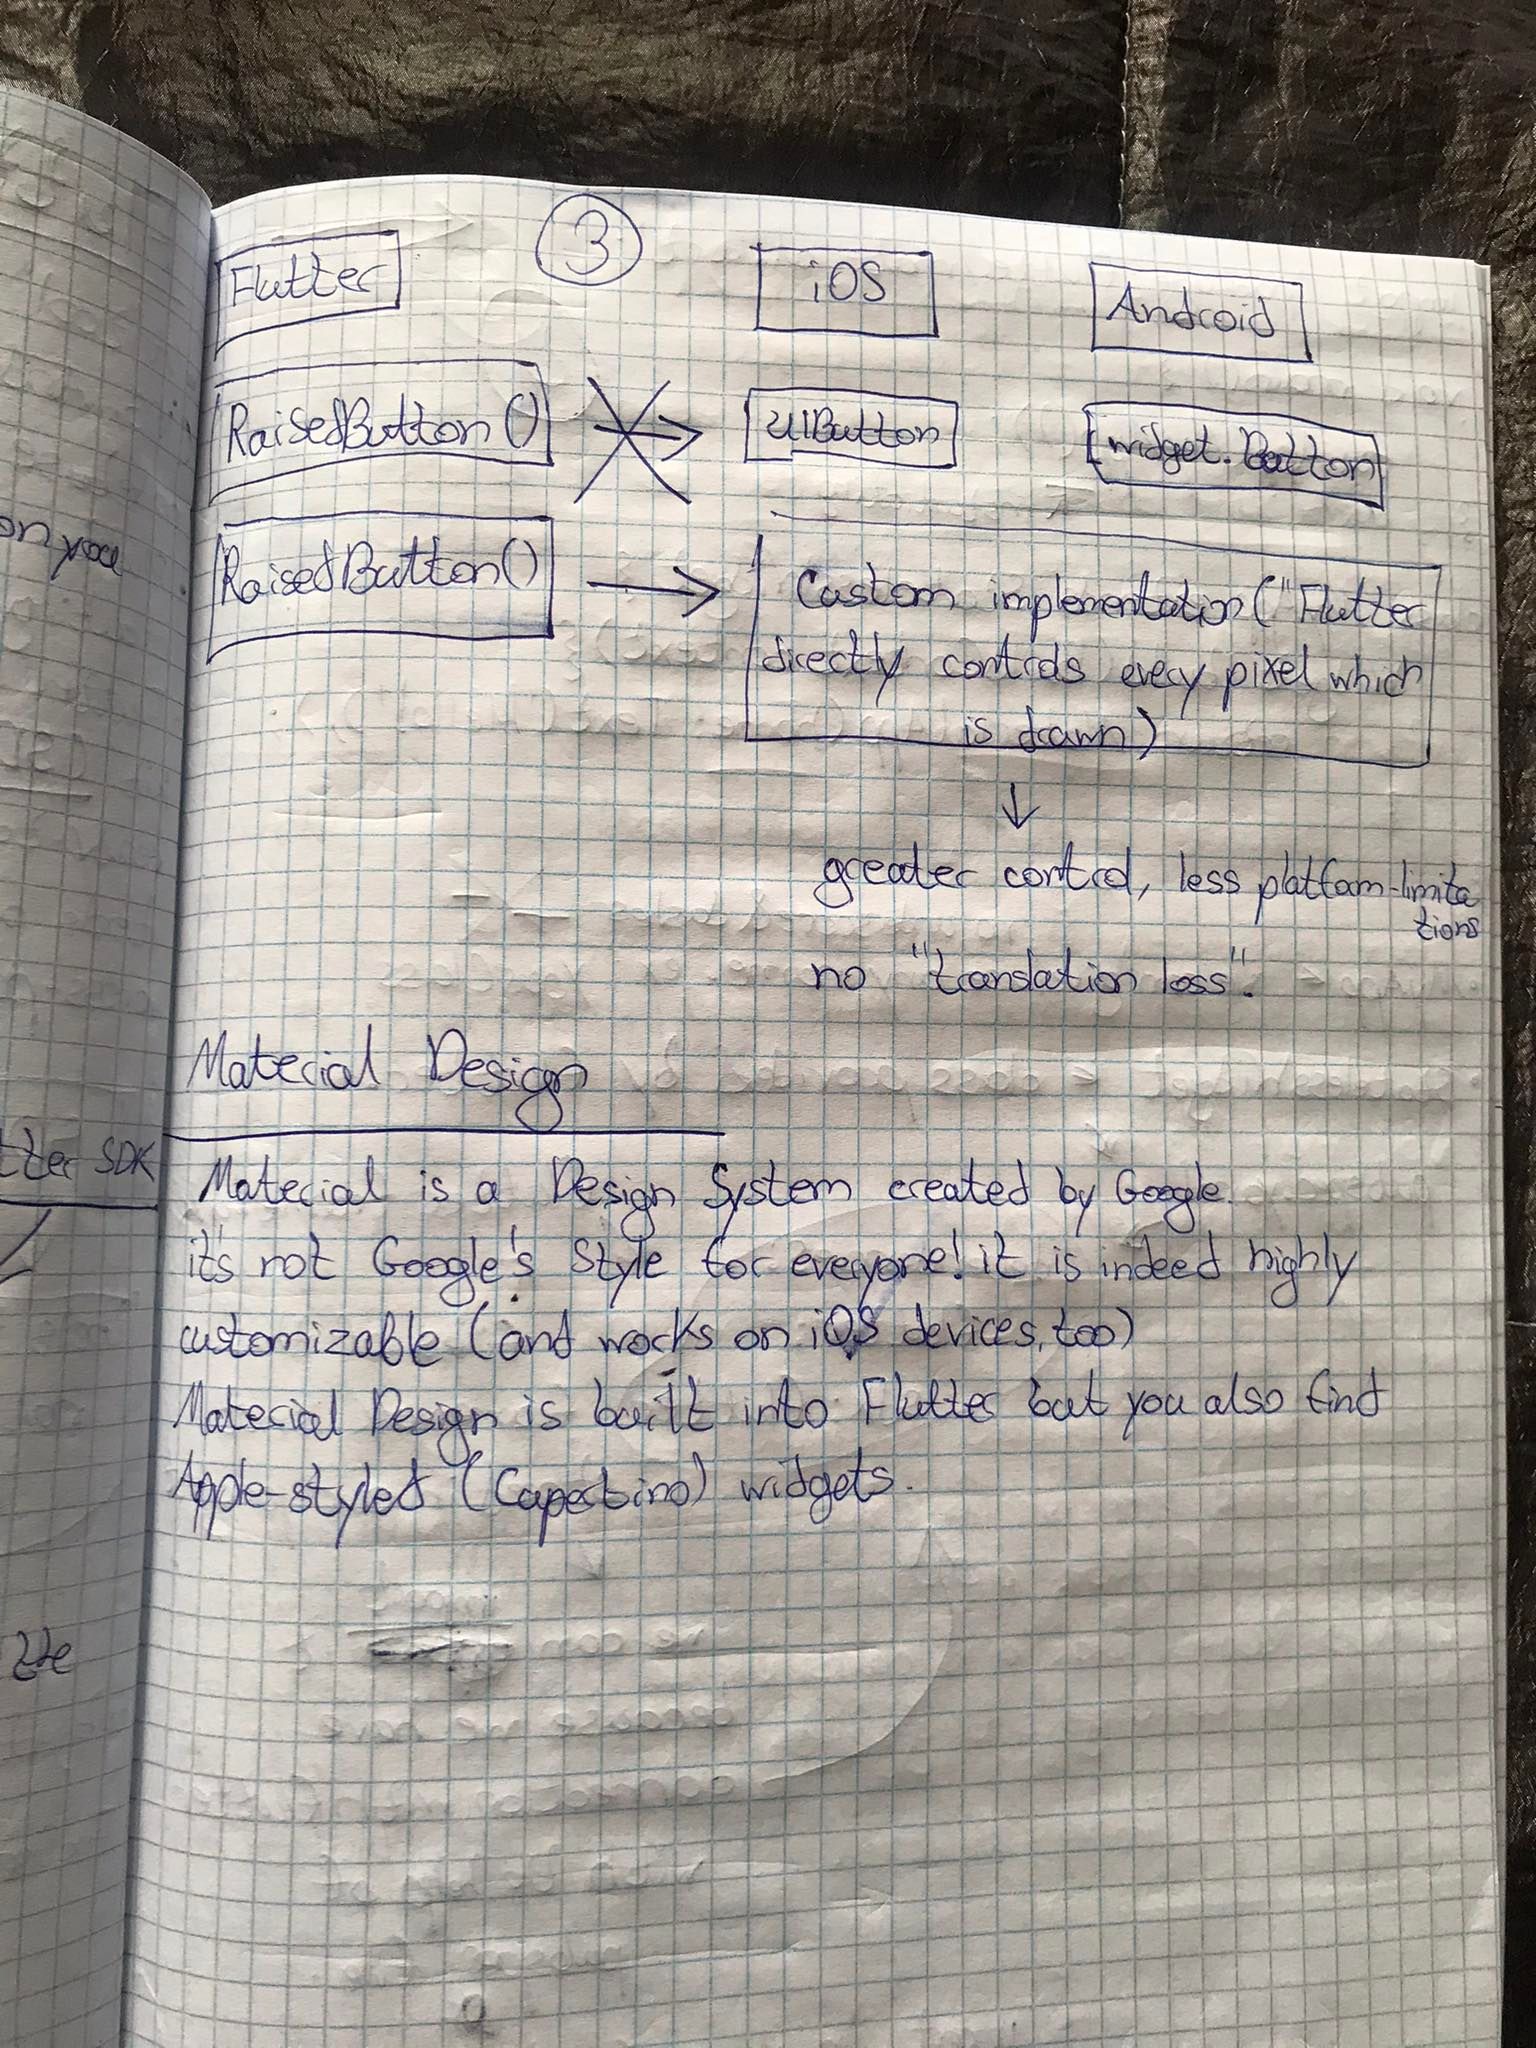 on your
tter SDK
tte
3
Flutter
iOS
Android
RaisedButton()
UIButton
widget.Button
RaisedButton()
Custom implementation ("Flutter
directly controls every pixel which
is drawn)
greater control, less platform-limita
tions
no "translation loss".
Material Design
Material is a Design System created by Google.
it's not Google's Style for everyone! it is indeed highly
customizable (and works on iOS devices, too)
Material Design is built into Flutter but you also find
Apple-styled (Cupertino) widgets.